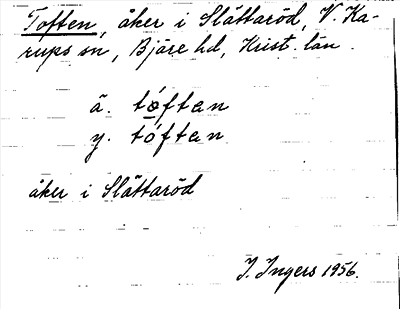 Toften, åker i Slättaröd, V. Ka-
rups sn, Bjäre hd, Krist. län.
ä. tǿften
y. tṓften
åker i Slättaröd
J. Ingers 1956.